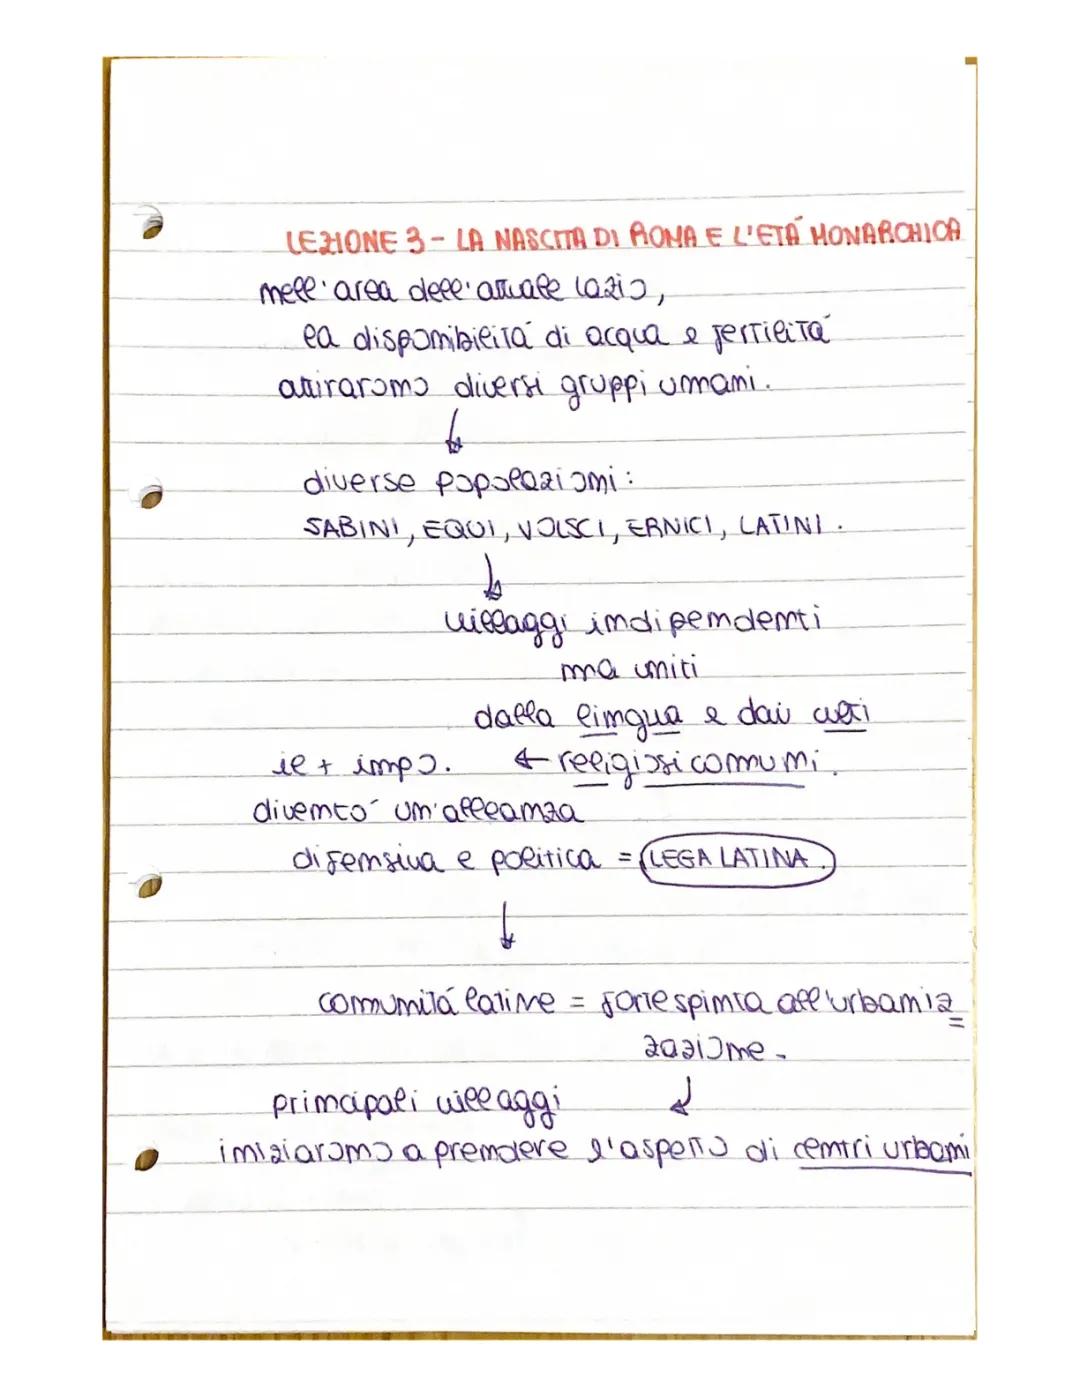 LEZIONE 3 - LA NASCITA DI ROMA E L'ETÁ MONARCHICA
nell'area dell'attuale Lazio,
la disponibilitá di acqua e fertilitá
attirarono diversi gruppi umani.
↓
diverse popolazioni:
SABINI, EQUI, VOLSCI, ERNICI, LATINI.
↓
villaggi indipendenti
ma uniti
dalla lingua e dai culti
il + imp. ← religiosi comuni.
diventó un'alleanza
difensiva e politica = LEGA LATINA.
↓
comunitá latine = forte spinta all'urbaniz=
zazione.
principali villaggi ↓
iniziarono a prendere l'aspetto di centri urbani